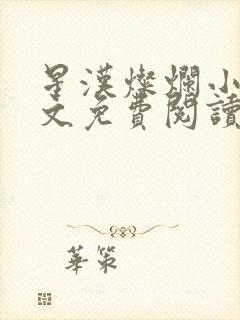 星漢燦爛小
文免費閱讀
華策